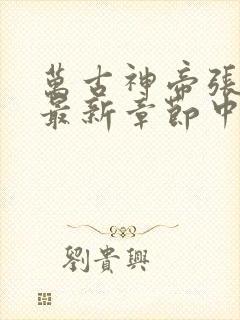 萬古神帝張
最新章節中
劉貴興